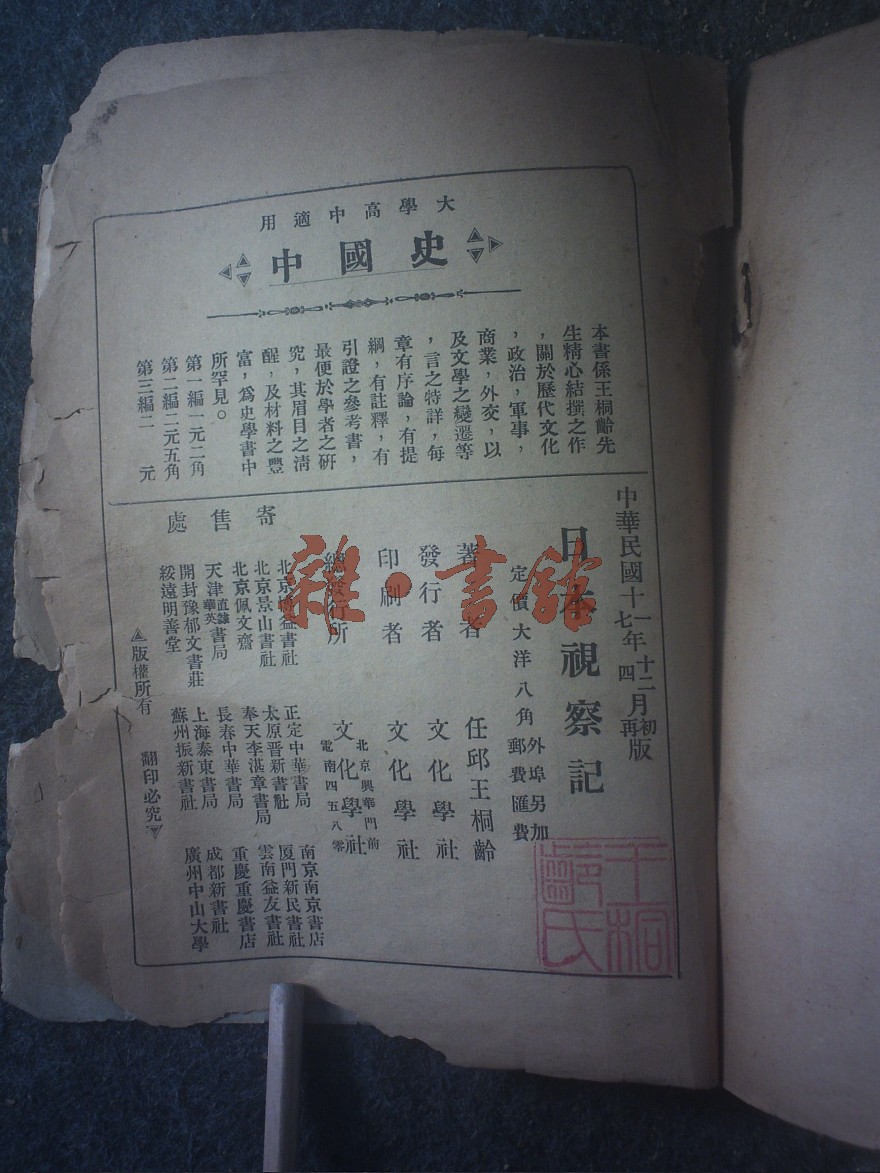 大學高中適用
中國史
本書係王桐齡先
生精心結撰之作
，關於歷代文化
，政治，軍事，
商業，外交，以
及文學之變遷等
，言之特詳，每
章有序論，有提
綱，有註釋，有
引證之參考書，
最便於學者之研
究，其眉目之清
醒，及材料之豐
富，爲史學書中
所罕見。
第一編一元二角
第二編二元五角
第三編二 元
中華民國十一年十二月初版
十七 四 再
日本視察記
定價大洋八角
外埠另加
郵費匯費
著者 任邱王桐齡
發行者 文化學社
印刷者 文化學社
總發行所 文化學社
北京興華門前
電南四五八零
寄售處
北京景山書社
北京佩文齋
天津直隸書局
華英
開封豫郁文書莊
綏遠明善堂
正定中華書局
太原晋新書社
奉天李湛章書局
長春中華書局
上海泰東書局
蘇州振新書社
南京南京書店
厦門新民書社
雲南益友書社
重慶重慶書店
成都新書社
廣州中山大學
版權所有 翻印必究
王桐齡氏
雜·書館